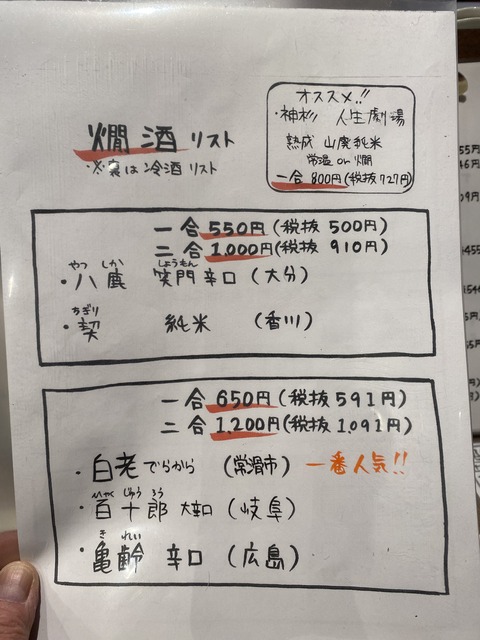 燗酒リスト
※裏は冷酒リスト
オススメ!!
・神杉 人生劇場
熟成 山廃純米
常温 or 燗
一合 800円(税抜727円)
一合 550円(税抜 500円)
二合 1,000円(税抜 910円)
やつ しか しょうもん
・八鹿 笑門 辛口(大分)
ちぎり
・契 純米 (香川)
一合 650円(税抜 591円)
二合 1,200円(税抜 1,091円)
・白老 でらから (常滑市) 一番人気!!
ひゃく じゅう ろう
・百十郎 大辛口(岐阜)
き れい
・亀齢 辛口(広島)